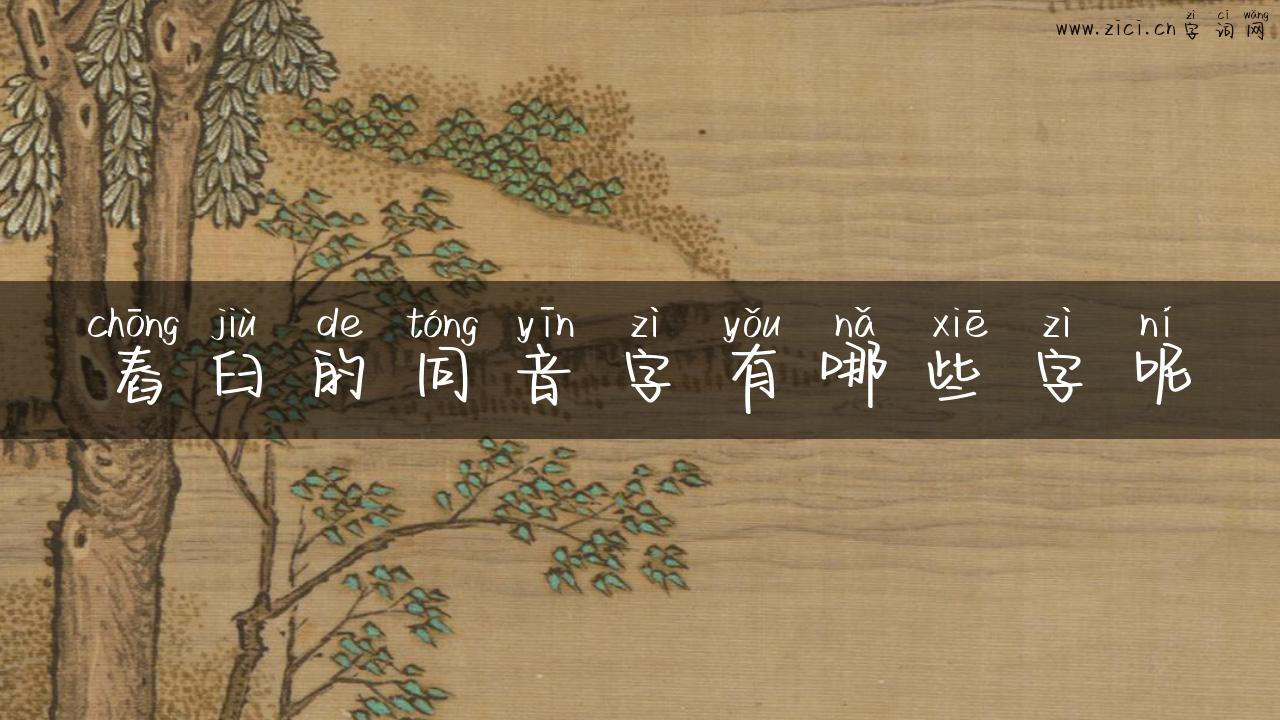 zì cí wǎng
www.zici.cn 字词网
chōng jiù de tóng yīn zì yǒu nǎ xiē zì ní
舂臼的同音字有哪些字呢